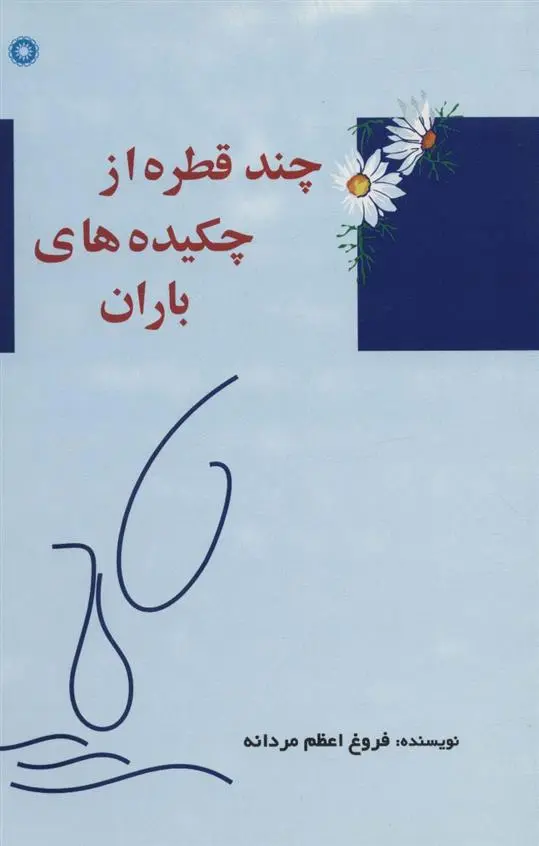 چند قطره از
چکیده های
باران
نویسنده: فروغ اعظم مردانه